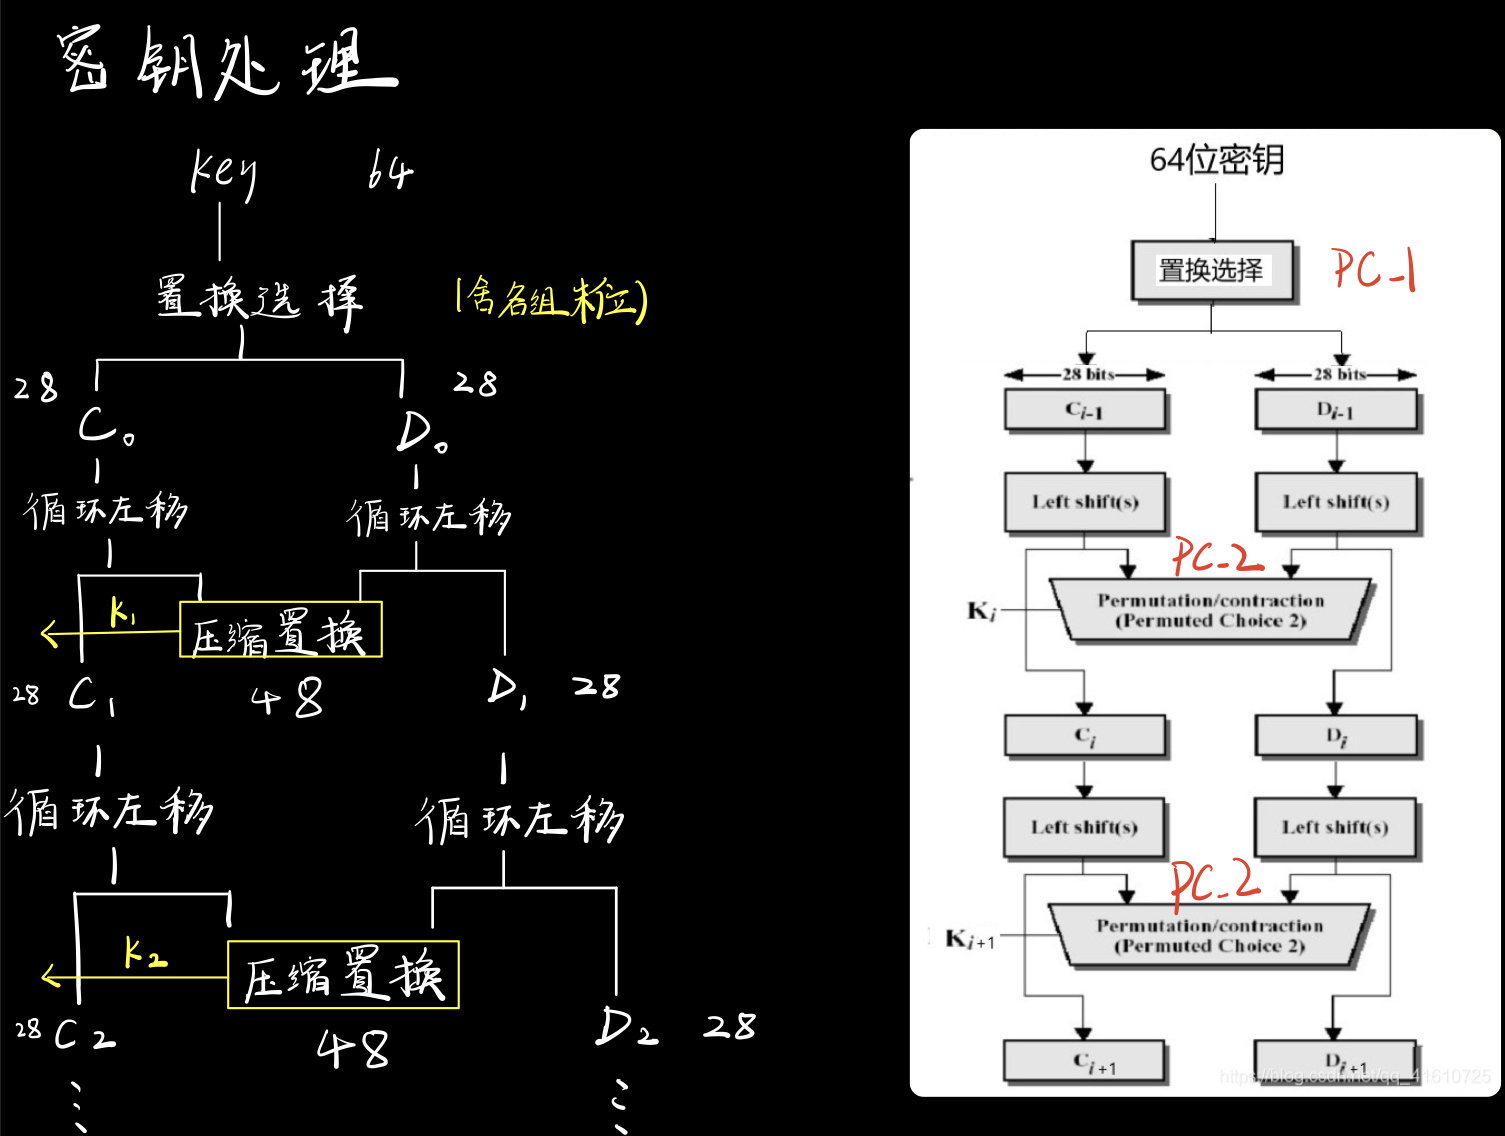 密钥处理
Key 64
置换选择 (舍各组末位)
28 28
C₀ D₀
循环左移 循环左移
K₁
压缩置换
28 C₁ 48 D₁ 28
循环左移 循环左移
K₂
压缩置换
28 C₂ 48 D₂ 28
64位密钥
置换选择 PC-1
28 bits 28 bits
Cᵢ₋₁ Dᵢ₋₁
Left shift(s) Left shift(s)
PC-2
Kᵢ Permutation/contraction
(Permuted Choice 2)
Cᵢ Dᵢ
Left shift(s) Left shift(s)
PC-2
Kᵢ₊₁ Permutation/contraction
(Permuted Choice 2)
Cᵢ₊₁ Dᵢ₊₁
https://blog.csdn.net/qq_41610725